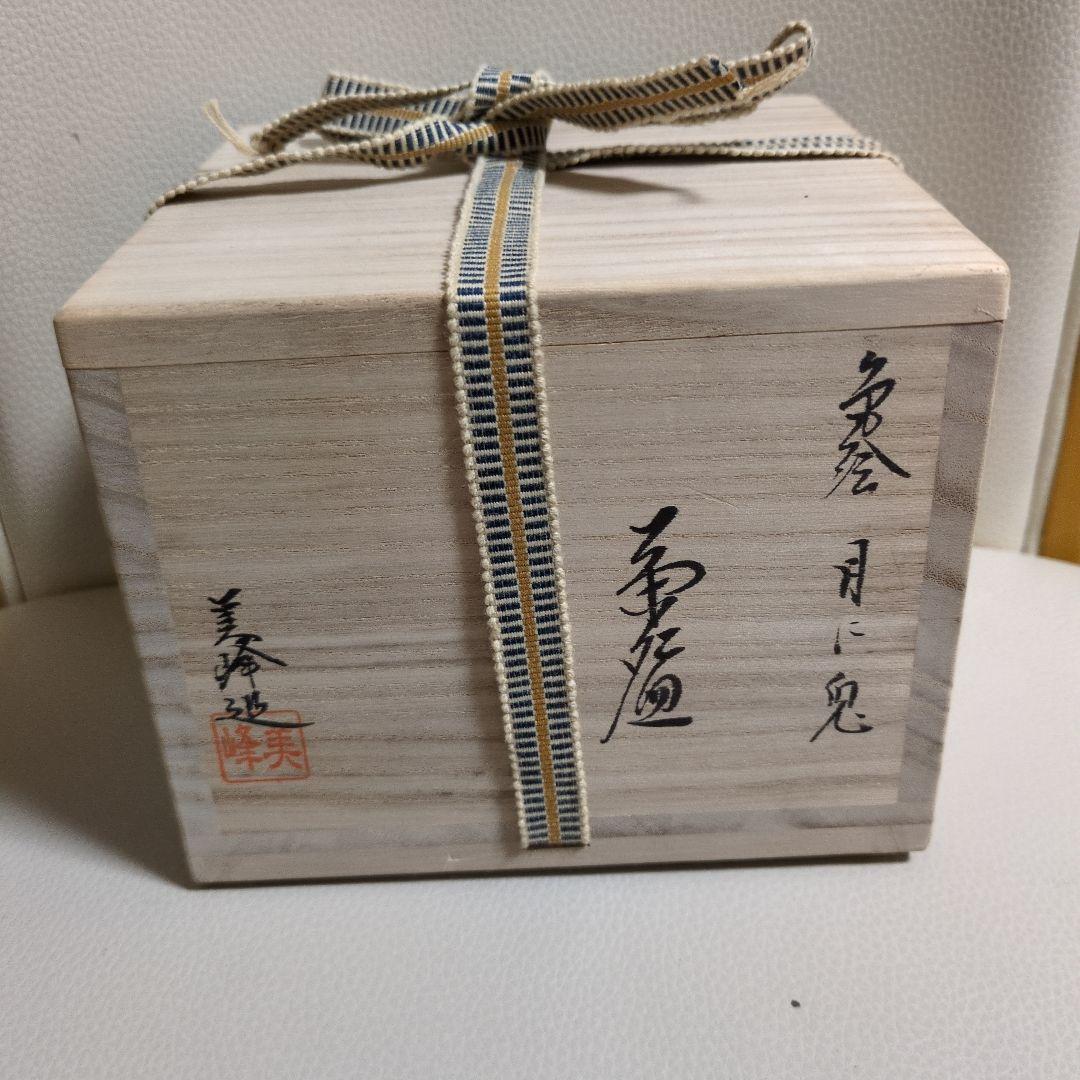 色絵 月に兎
茶碗
美峰造
美峰